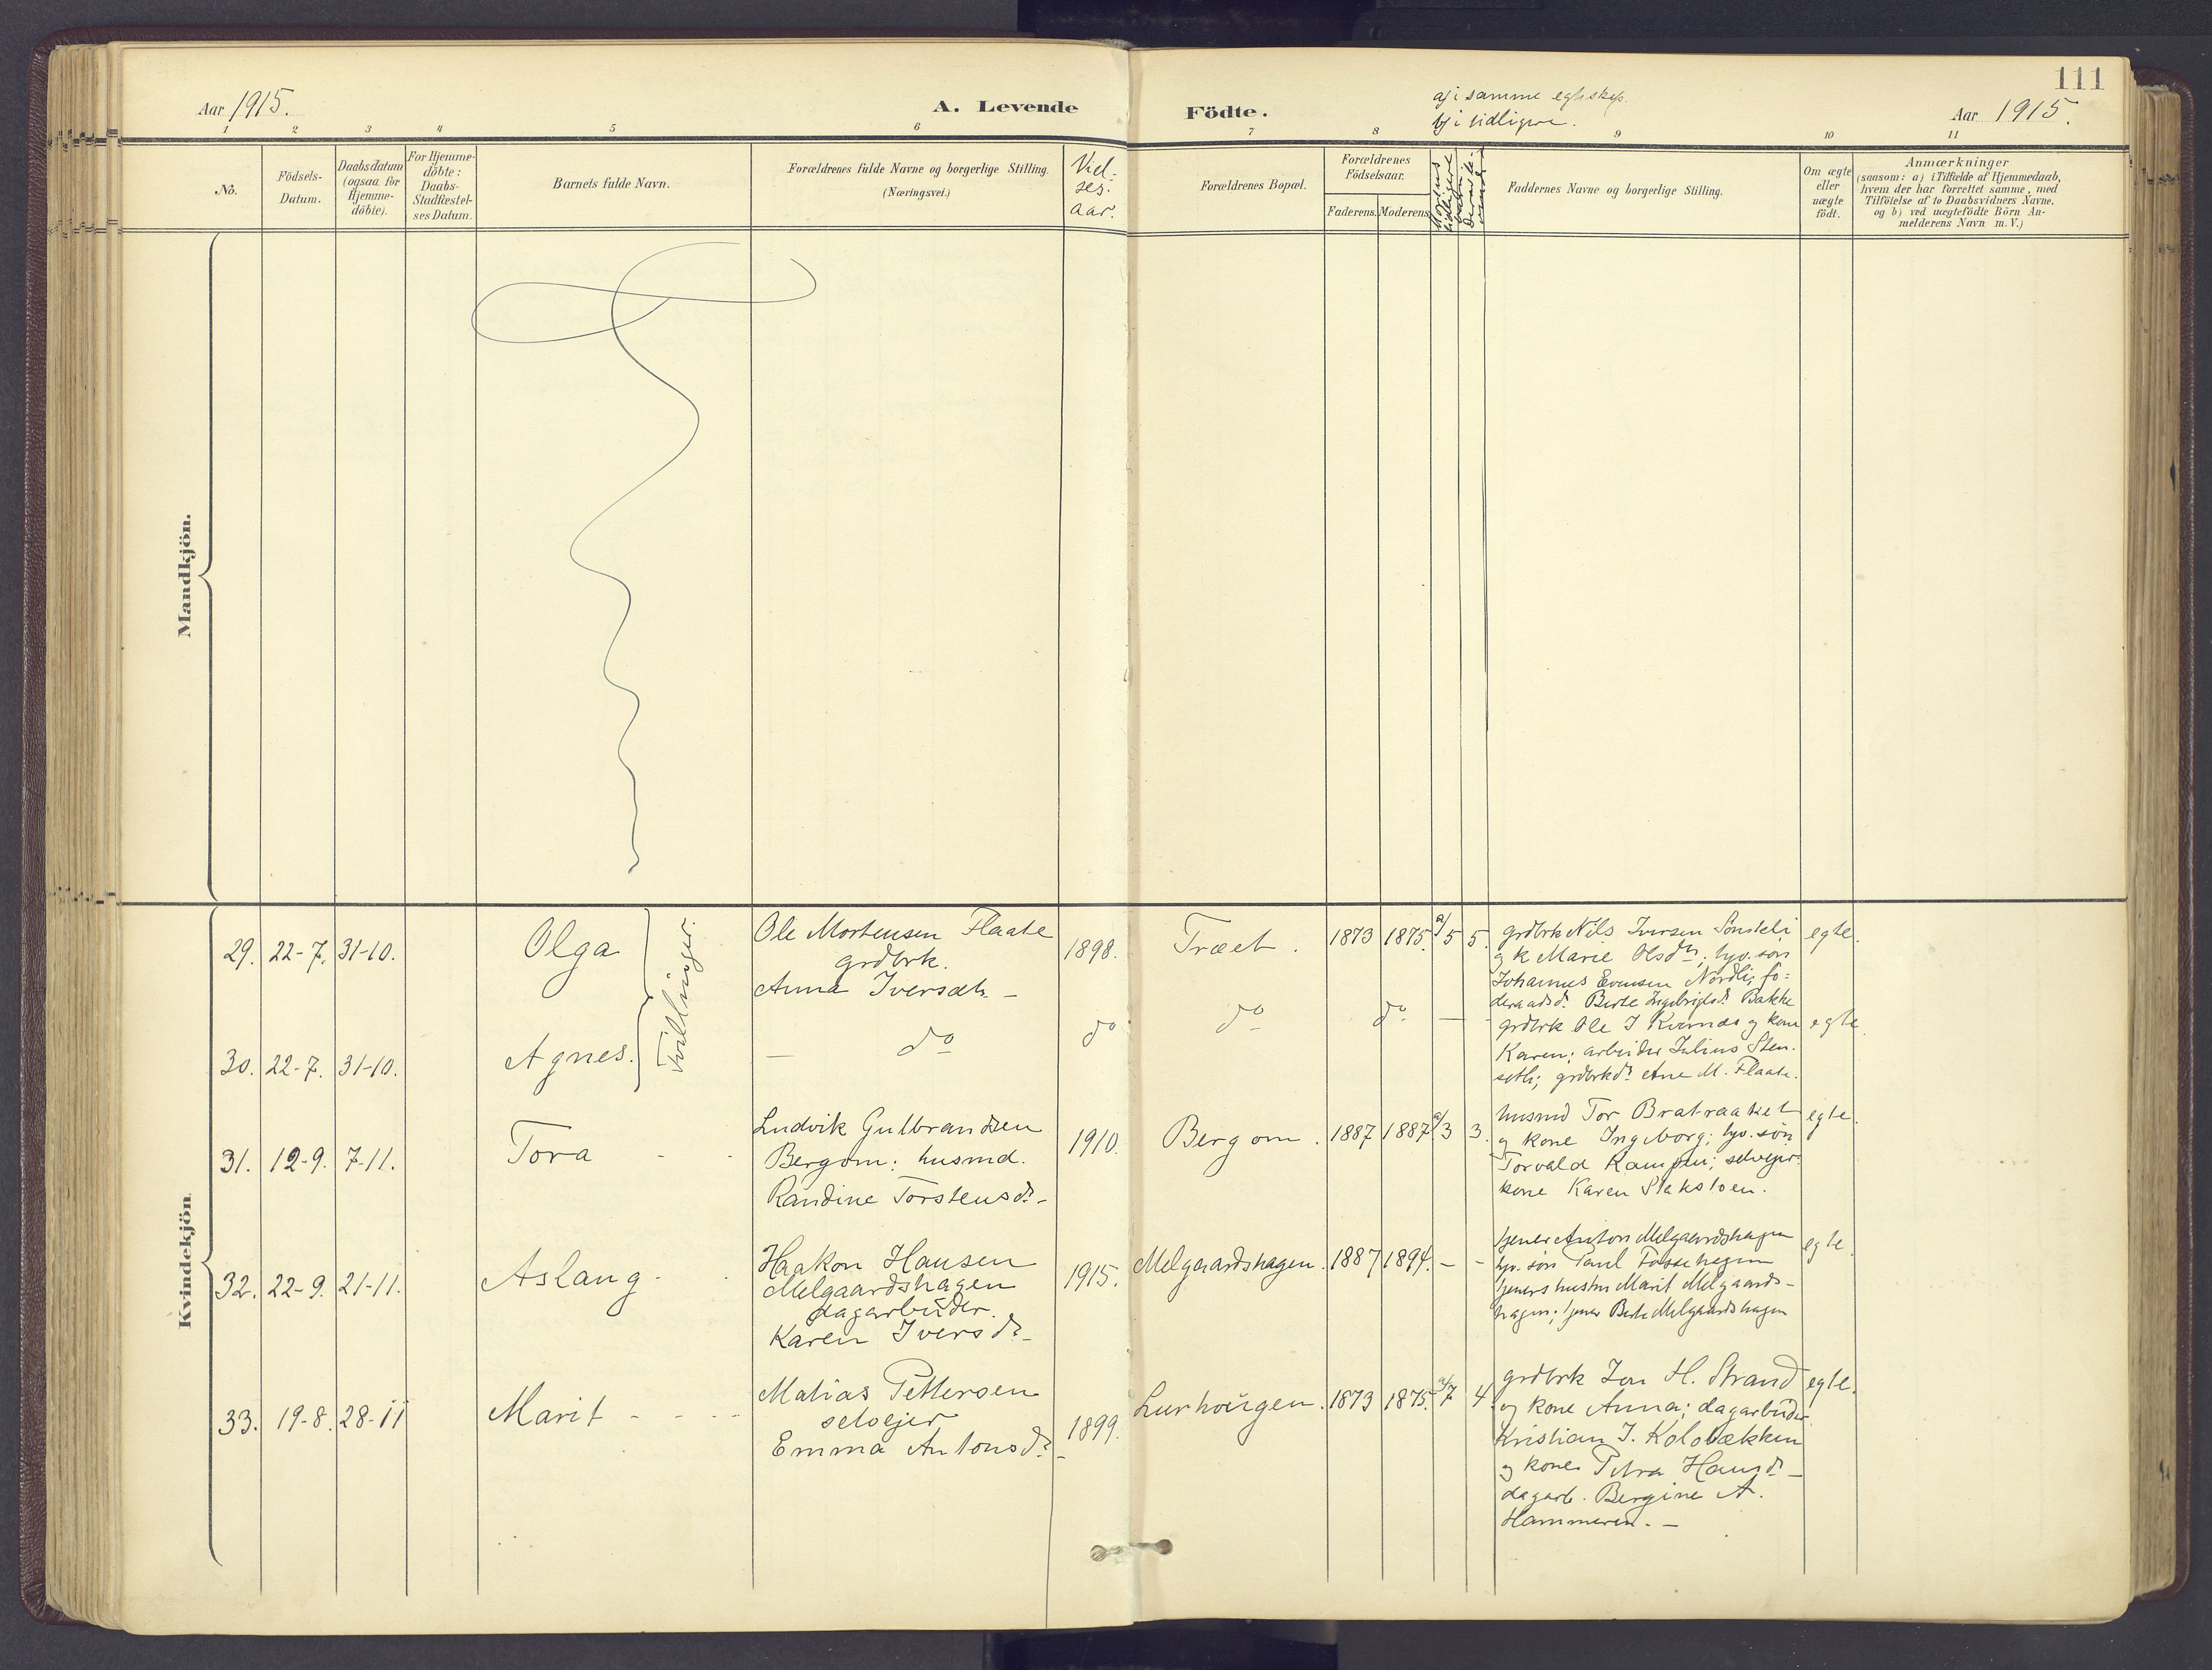 111
Aar 1915.
A. Levende Födte.
a) i samme egtskp.
b) i tidligere.
Aar 1915.
1 2 3 4 5 6 7 8 9 10 11
No.
Födsels-
Datum.
Daabsdatum
(ogsaa for
Hjemme-
döbte).
For Hjemme-
döbte:
Daabs-
Stadfæstel-
ses Datum.
Barnets fulde Navn.
Forældrenes fulde Navne og borgerlige Stilling.
(Næringsvei.)
Viel-
ses.
aar.
Forældrenes Bopæl.
Forældrenes
Födselsaar.
Faderens.
Moderens
Faddernes Navne og borgerlige Stilling.
Om ægte
eller
uægte
födt.
Anmærkninger
(saasom: a) i Tilfælde af Hjemmedaab,
hvem der har forrettet samme, med
Tilföielse af to Daabsvidners Navne.
og b) ved uægtefödte Börn An-
melderens Navn m. V.)
Mandkjön.
Kvindekjön
29. 22-7. 31-10.
Olga
Tvillinger.
Ole Mortensen Flaate
grdbrk.
Anna Iversdtr. -
1898.
Træet.
1873 1875. a/5 5.
grdbrk Nils Iversen Sönsteli
og k Marie Olsdtr; hjv. sön
Johannes Evensen Nordli, fö-
deraadsd. Berte Ingebrigtsd. Bakke
egte.
30. 22-7. 31-10.
Agnes.
— do
do
do
do — -
grdbrk Ole J Kvernæs og kone
Karen; arbeider Julius Sten-
setli; grdbrkdr Ane M. Flaate.
egte.
31. 12-9. 7-11.
Tora - -
Ludvik Gulbrandsen
Bergom: husmd.
Randine Torstensdr. -
1910.
Bergom.
1887 1887 a/3 3.
husmd Tor Bratraaket
og kone Ingeborg; hjv. sön
Torvald Kampen; selvejer-
kone Karen Slaksloen.
egte.
32. 22-9. 21-11.
Aslaug - -
Haakon Hansen
Melgaardshagen
dagarbeider.
Karen Iversdr. -
1915.
Melgaardshagen.
1887 1894. - -
tjener Anton Melgaardshagen
hjv. sön Paul Fossehagen
tjeners hustru Marit Melgaards-
hagen; tjener Berte Melgaardshagen
egte.
33. 19-8. 28-11
Marit - - - -
Matias Pettersen
selvejer
Emma Antonsdr. -
1899.
Lurhougen.
1873 1875. a/7 4.
grdbrk Jon H. Strand
og kone Anna; dagarbeider
Kristian J. Kolobækken
og kone Petra Hansdr -
dagarb. Bergine A.
Hammeren. -
egte.